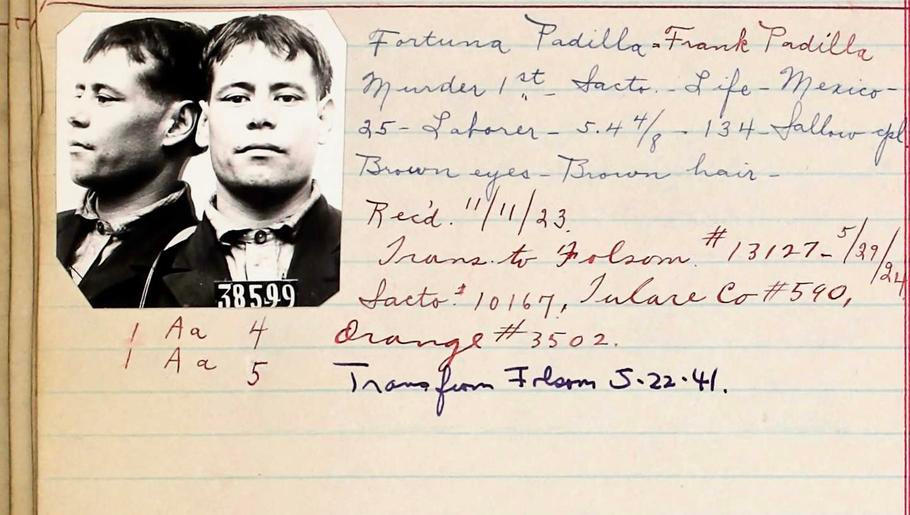 Fortuna Padilla - Frank Padilla
Murder 1st - Sacto. - Life - Mexico -
25 - Laborer - 5.4 4/8 - 134 - Sallow cpl
Brown eyes - Brown hair -
Rec'd. 11/11/23.
Trans. to Folsom. # 13127 - 5/29/24
Sacto. # 10167, Tulare Co # 590,
Orange # 3502.
Trans from Folsom 5-22-41.
38599
1 Aa 4
1 Aa 5